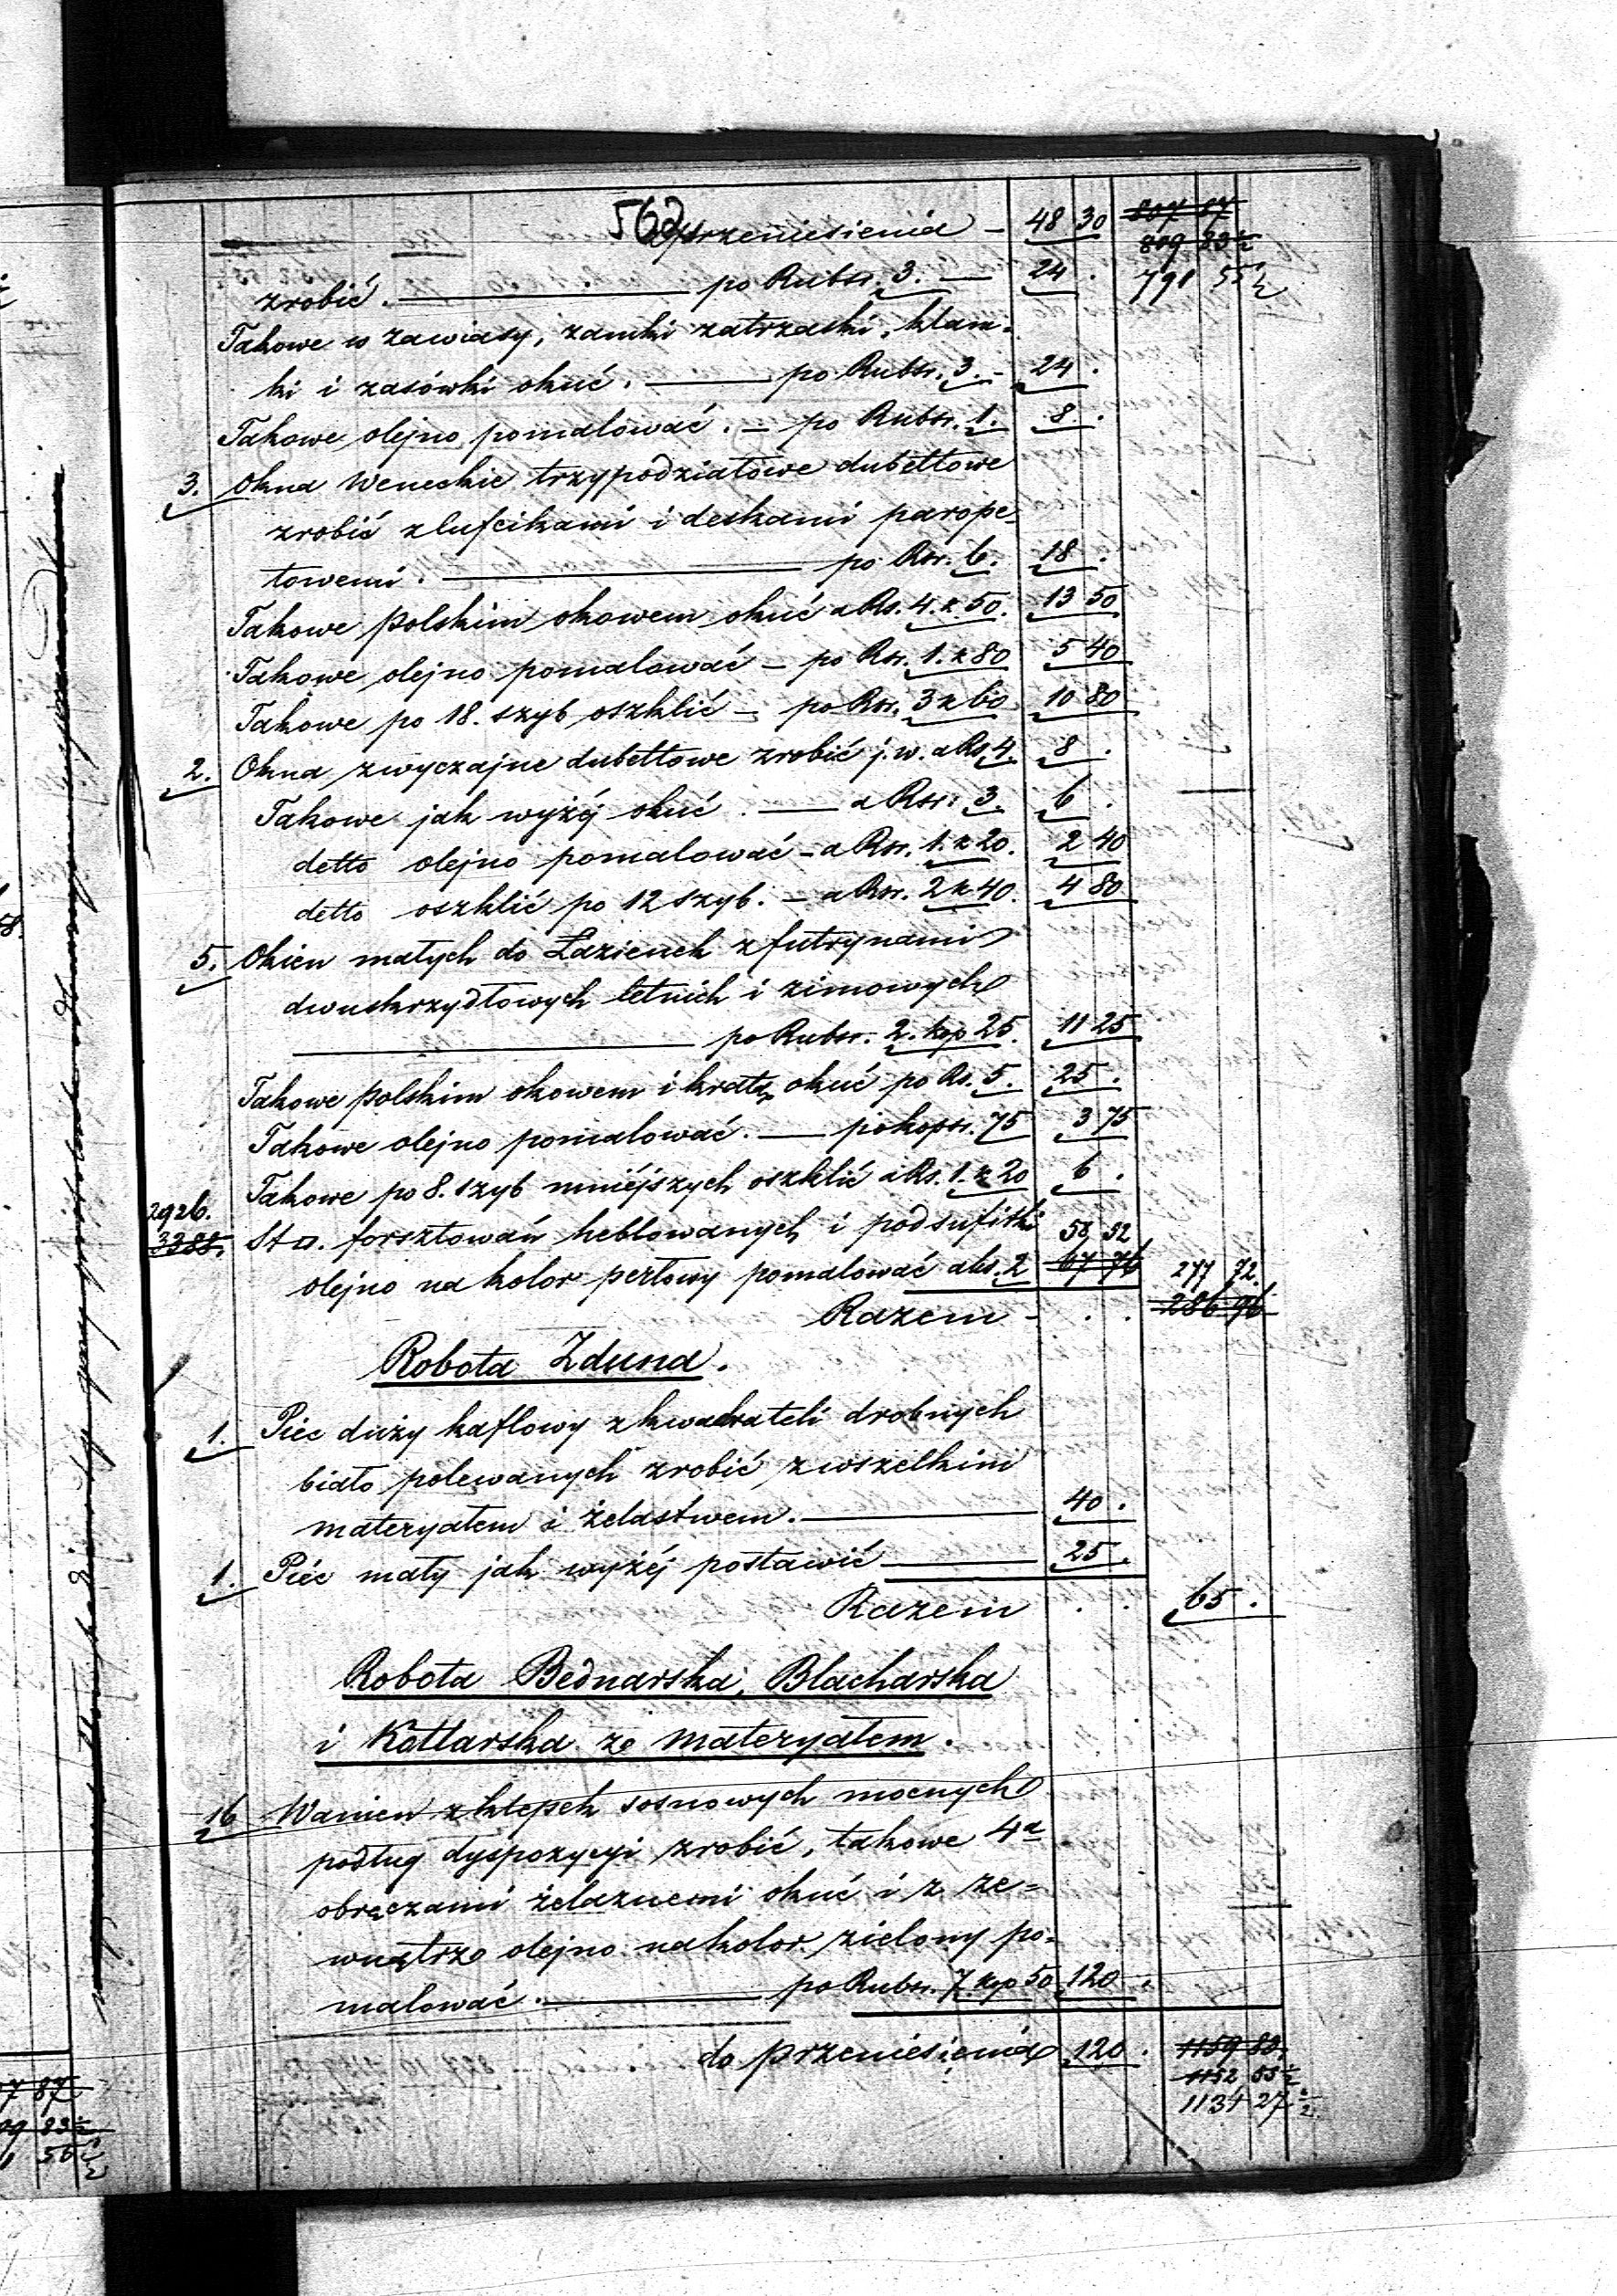 562
z przeniesienia - 48 30 807 87
809 83½
zrobić. po Rubsr. 3. 24. 791 55½
Takowe w zawiasy, zamki zatrzaski, klam-
ki i zasówki okuć. po Rubsr. 3. - 24.
Takowe olejno pomalować. - po Rubsr. 1. 8.
3. Okna Weneckie trzypodziałowe dubeltowe
zrobić z lufcikami i deskami parope-
towemi. po Rsr. 6. 18.
Takowe polskim okowem okuć a Rs. 4. k. 50. 13 50
Takowe olejno pomalować - po Rsr. 1. k 80 5 40
Takowe po 18. szyb oszklić - po Rsr. 3 k 60 10 80
2. Okna zwyczajne dubeltowe zrobić j. w. a Rs 4. 8.
Takowe jak wyżéj okuć. a Rsr. 3. 6.
detto olejno pomalować - a Rsr. 1. k 20. 2 40
detto oszklić po 12 szyb. - a Rsr. 2 k 40. 4 80
5. Okien małych do Łazienek z futrynami
dwuskrzydłowych letnich i zimowych
po Rubsr. 2. kop 25. 11 25
Takowe polskim okowem i kratą okuć po Rs. 5. 25.
Takowe olejno pomalować. po kopsr. 75 3 75
Takowe po 8. szyb mniéjszych oszklić a Rs. 1. k 20 6.
2926.
3388. St □. forsztowań heblowanych i podsufitki 58 52
olejno na kolor perłowy pomalować a ks. 2 67 76 277 72.
Razem - . . 286 96
Robota Zduna.
1. Piec duży kaflowy z kwadrateli drobnych
biało polewanych zrobić z wszelkim
materyałem i żelastwem. 40.
1. Piéc mały jak wyżéj postawić 25.
Razem . . 65.
Robota Bednarska, Blacharska
i Kotlarska ze materyałem.
16 Wanien z klepek sosnowych mocnych
podług dyspozycyi zrobić, takowe 4a
obręczami żelaznemi okuć i z ze=
wnątrz olejno na kolor zielony po=
malować. po Rubsr. 7. kop 50 120.
do przeniesienia 120. 1159 83.
1152 55½
1134 27½